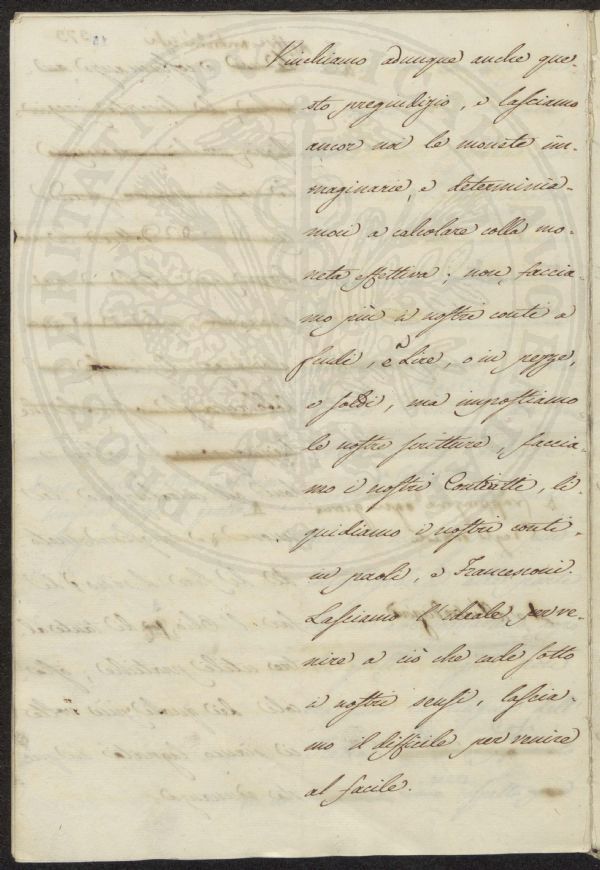 Vinchiamo adunque anche que-
sto pregiudizio, e lasciamo
ancor noi le monete im-
maginarie, e determinia-
moci a calcolare colla mo-
neta effettiva; non faccia-
mo più i nostri conti a
scudi, e Lire, o in pezze,
e soldi, ma impostiamo
le nostre scritture, faccia-
mo i nostri Contratti, li-
quidiamo i nostri conti
in paoli, e Francesconi.
Lasciamo l'ideale per ve-
nire a ciò che cade sotto
i nostri sensi, lascia-
mo il difficile per venire
al facile.